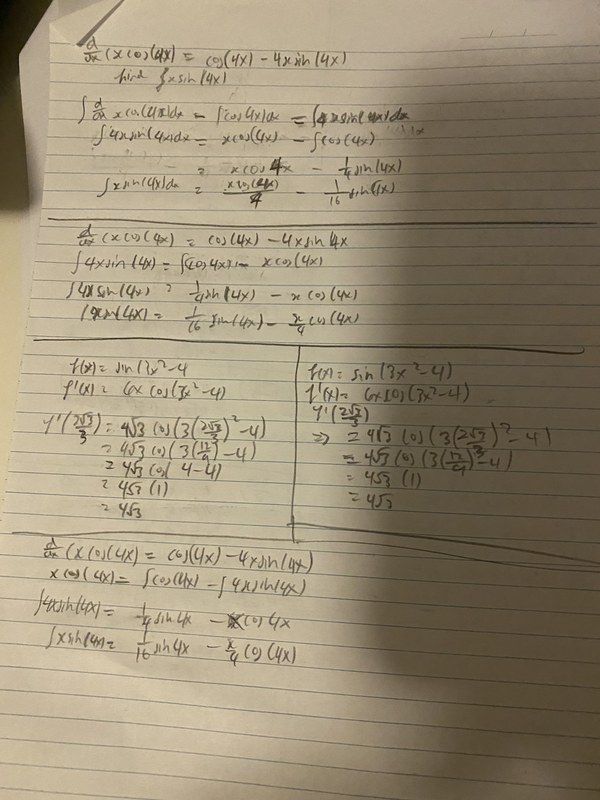 d/dx (x cos(4x) = cos(4x) - 4x sin(4x)
find ∫x sin(4x)
∫ d/dx x cos(4x)dx = ∫cos(4x)dx = ∫4x sin(4x)dx
∫4x sin(4x)dx = x cos(4x) - ∫cos(4x)
= x cos 4x - 1/4 sin(4x)
∫x sin(4x)dx = x cos(4x)/4 - 1/16 sin(4x)
d/dx (x cos(4x) = cos(4x) - 4x sin 4x
∫4x sin(4x) = ∫cos 4x - x cos(4x)
∫4x sin(4x) = 1/4 sin(4x) - x cos(4x)
∫x sin(4x) = 1/16 sin(4x) - x/4 cos(4x)
f(x) = sin(3x²-4
f'(x) = 6x cos(3x²-4)
f'(2√3/3) = 4√3 cos(3(2√3/3)²-4)
= 4√3 cos(3(12/9)-4)
= 4√3 cos(4-4)
= 4√3 (1)
= 4√3
f(x) = sin(3x²-4)
f'(x) = 6x cos(3x²-4)
f'(2√3/3)
=> = 4√3 cos(3(2√3/3)²-4)
= 4√3 cos(3(12/9)-4)
= 4√3 (1)
= 4√3
d/dx (x cos(4x) = cos(4x) - 4x sin(4x)
x cos(4x) = ∫cos(4x) - ∫4x sin(4x)
∫4x sin(4x) = 1/4 sin 4x - x cos 4x
∫x sin(4x) = 1/16 sin 4x - x/4 cos(4x)